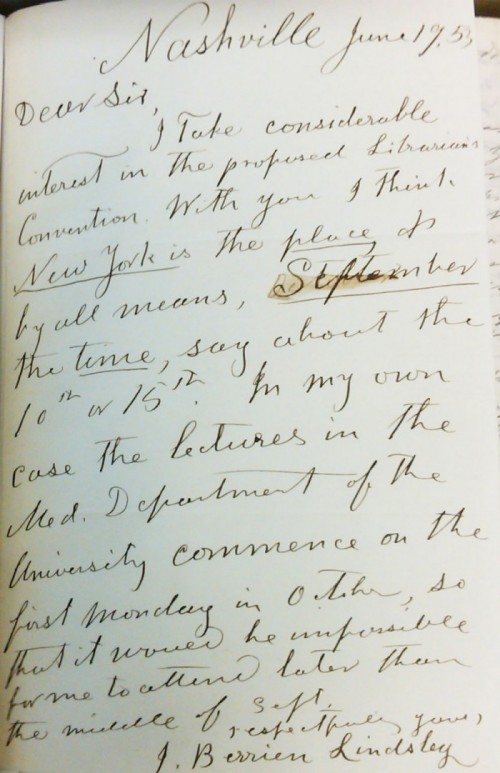 Nashville June 19, 53
Dear Sir,
I Take considerable
interest in the proposed Librarians
Convention. With you I think
New York is the place &
by all means, September
the time, say about the
10th or 15th. In my own
case the lectures in the
Med. Department of the
University commence on the
first Monday in October, so
that it would be impossible
for me to attend later than
the middle of Sept.
respectfully yours,
J. Berrien Lindsley